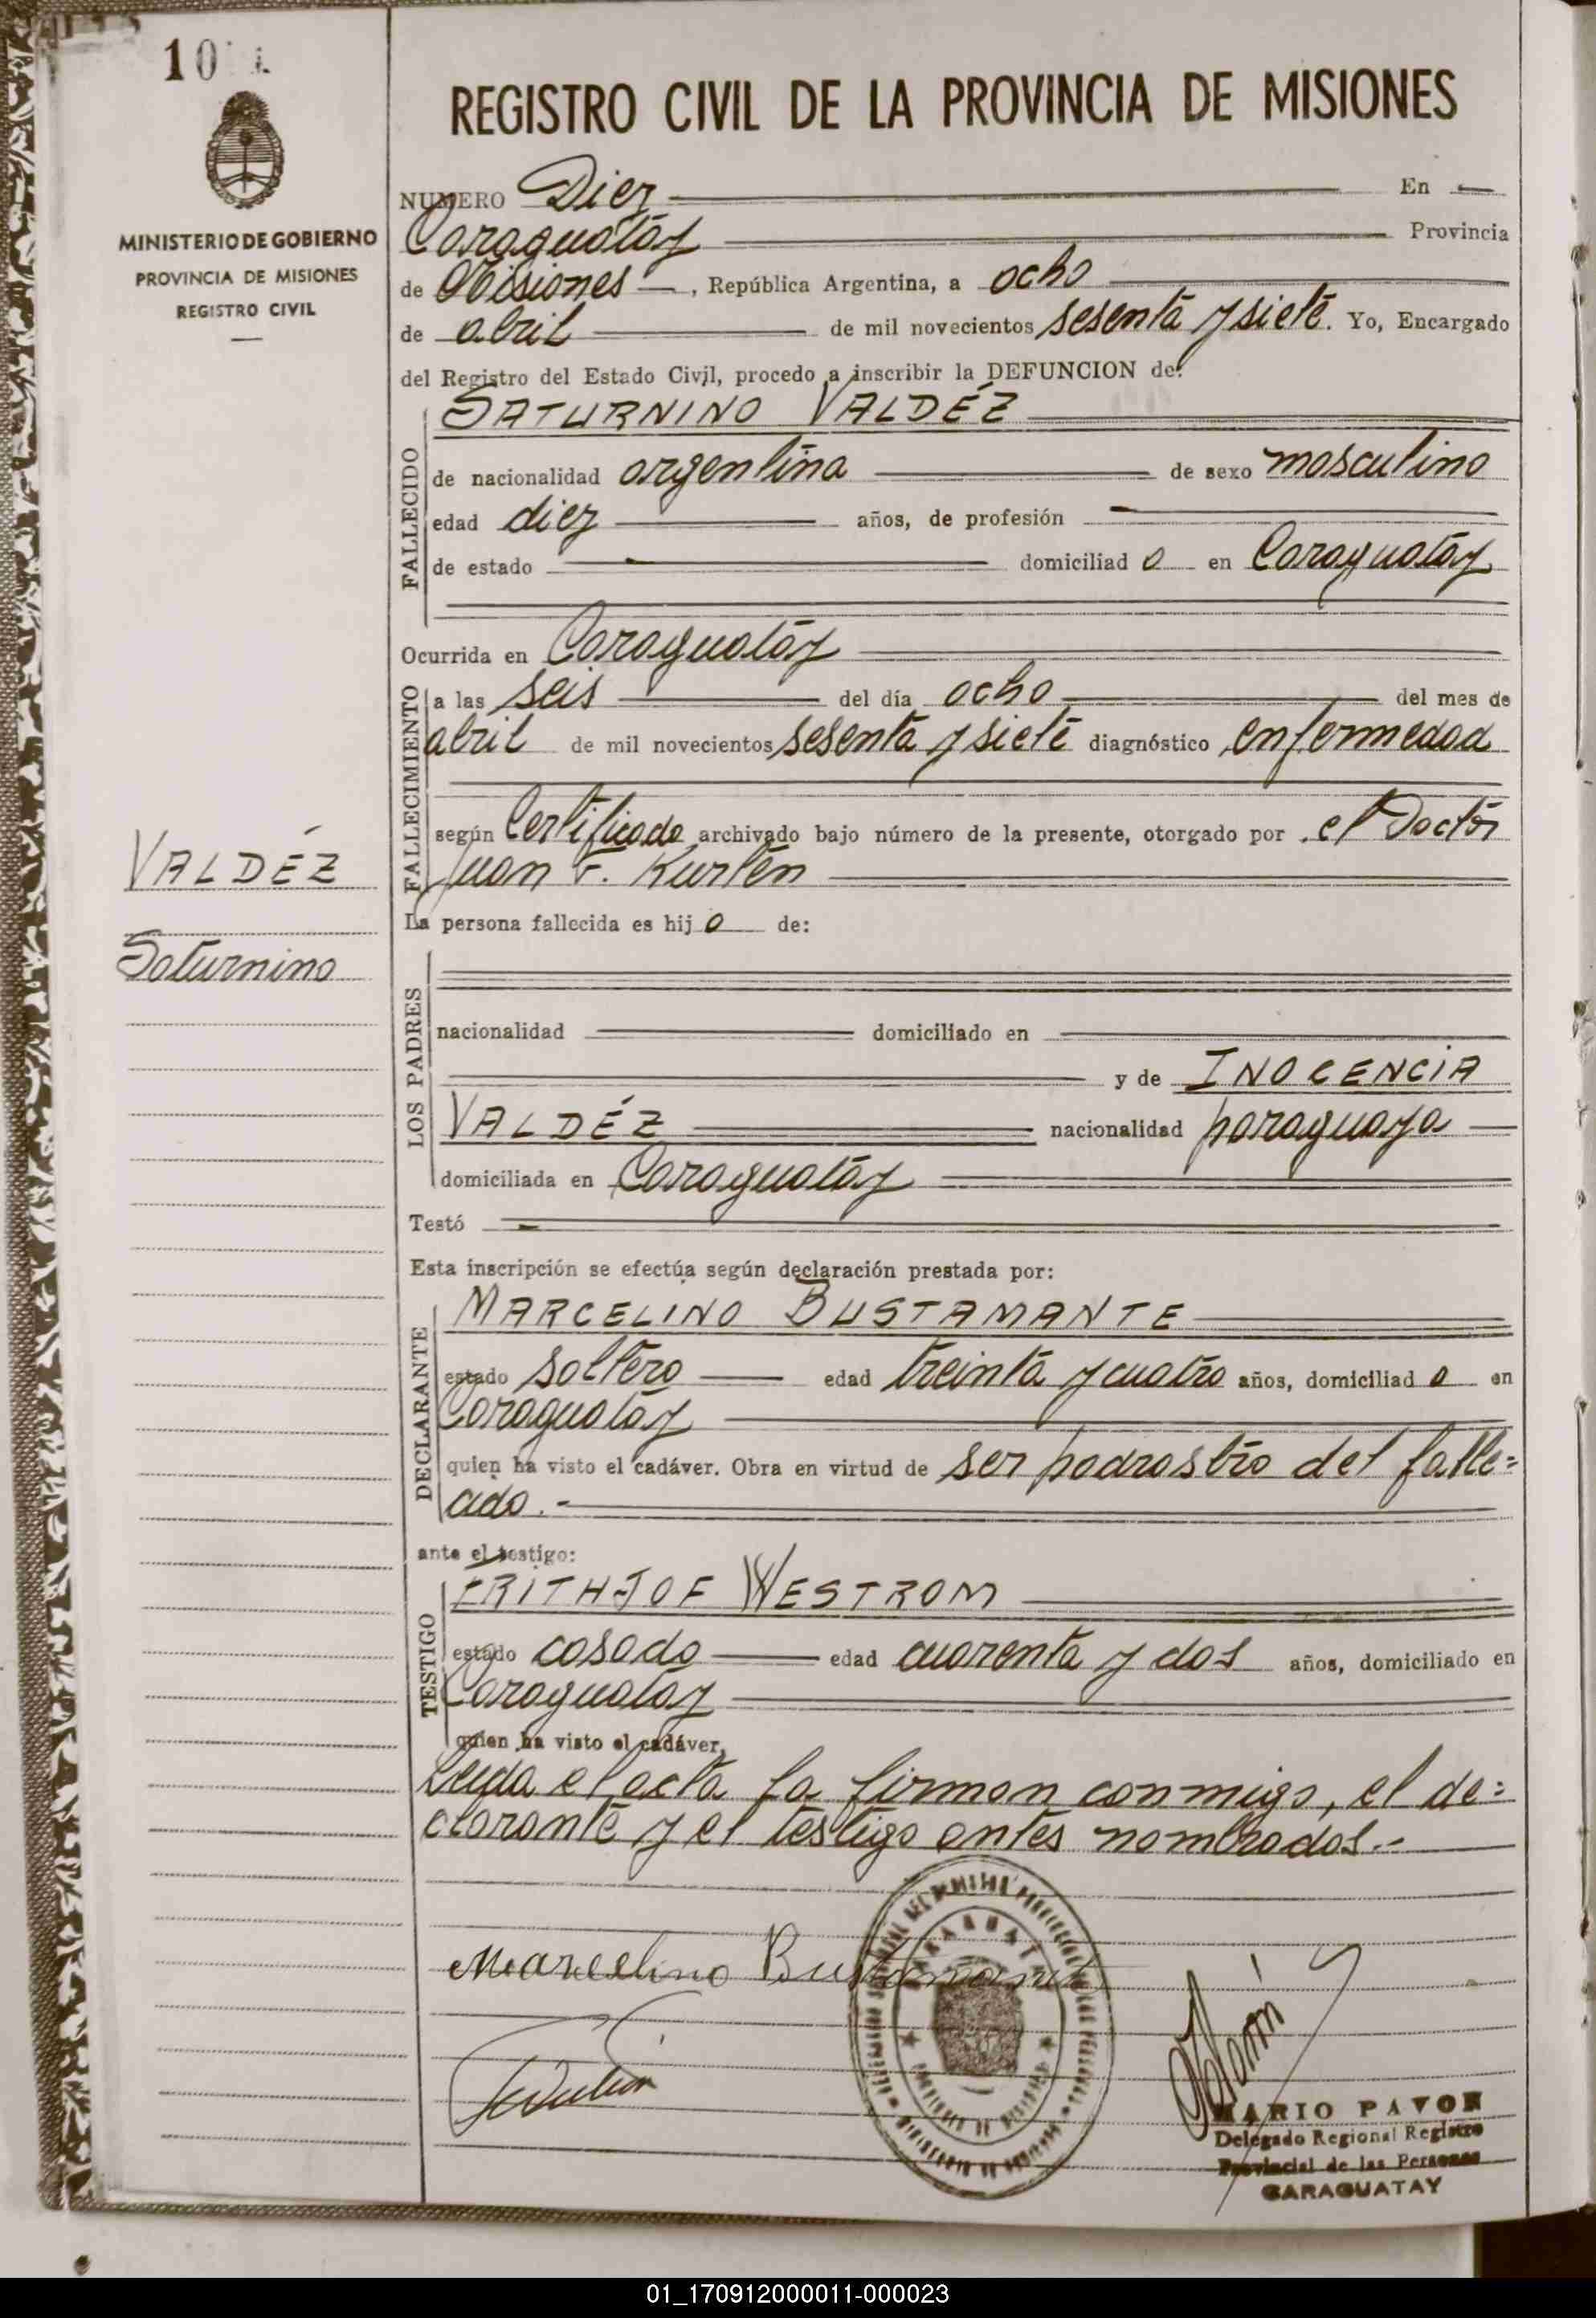 10
MINISTERIO DE GOBIERNO
PROVINCIA DE MISIONES
REGISTRO CIVIL
VALDÉZ
Saturnino
REGISTRO CIVIL DE LA PROVINCIA DE MISIONES
NUMERO Diez En
Caraguatáy Provincia
de Misiones, República Argentina, a ocho
de abril de mil novecientos sesenta y siete. Yo, Encargado
del Registro del Estado Civil, procedo a inscribir la DEFUNCION de:
FALLECIDO
SATURNINO VALDÉZ
de nacionalidad argentina de sexo masculino
edad diez años, de profesión
de estado domiciliad o en Caraguatáy
Ocurrida en Caraguatáy
FALLECIMIENTO
a las seis del día ocho del mes de
abril de mil novecientos sesenta y siete diagnóstico enfermedad
según Certificado archivado bajo número de la presente, otorgado por el Doctor
Juan F. Kurtén
La persona fallecida es hij o de:
LOS PADRES
nacionalidad domiciliado en
y de INOCENCIA
VALDÉZ nacionalidad paraguaya
domiciliada en Caraguatáy
Testó
Esta inscripción se efectúa según declaración prestada por:
DECLARANTE
MARCELINO BUSTAMANTE
estado soltero edad treinta y cuatro años, domiciliad o en
Caraguatáy
quien ha visto el cadáver. Obra en virtud de ser padrastro del falle=
cido.-
ante el testigo:
TESTIGO
FRITHJOF WESTROM
estado casado edad cuarenta y dos años, domiciliado en
Caraguatáy
quien ha visto el cadáver,
Leída el acta la firman conmigo, el de=
clarante y el testigo antes nombrados.-
Marcelino Bustamante
MARIO PAVON
Delegado Regional Registro
Provincial de las Personas
CARAGUATAY
01_170912000011-000023